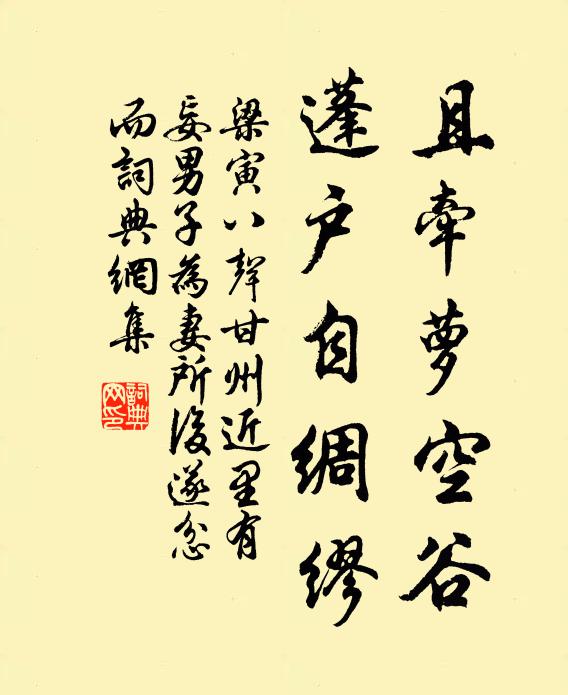 且牽夢空谷
蓬戶自綢繆
梁寅八聲甘州近里有
妄男子為妻所役遂忿
而詞典網集
詞典網印